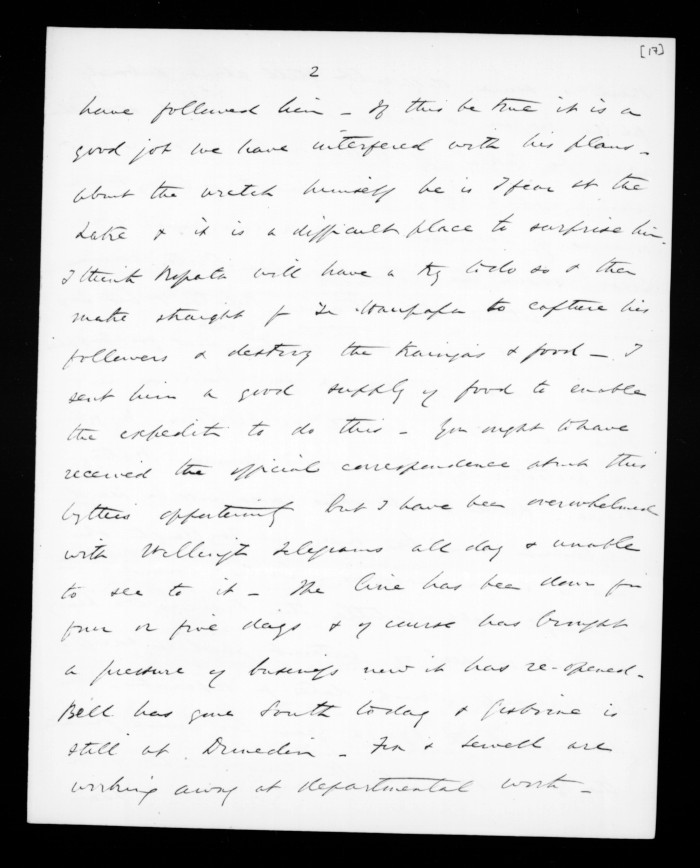 [17]
2
have followed him – If this be true it is a
good job we have interfered with his plans –
about the wretch himself he is I fear at the
Lake & it is a difficult place to surprise him.
I think Ropata will have a try to do so & then
make straight for Te Waupapa to capture his
followers & destroy the Kaingas & food – I
sent him a good supply of food to enable
the expeditn to do this – You ought to have
received the official correspondence about this
by this opportunity but I have been overwhelmed
with Wellingtn telegrams all day & unable
to see to it – The line has been down for
four or five days & of course has brought
a pressure of business now it has re-opened –
Bell has gone South today & Gisborne is
still at Dunedin – Fox & Sewell are
working away at departmental work –